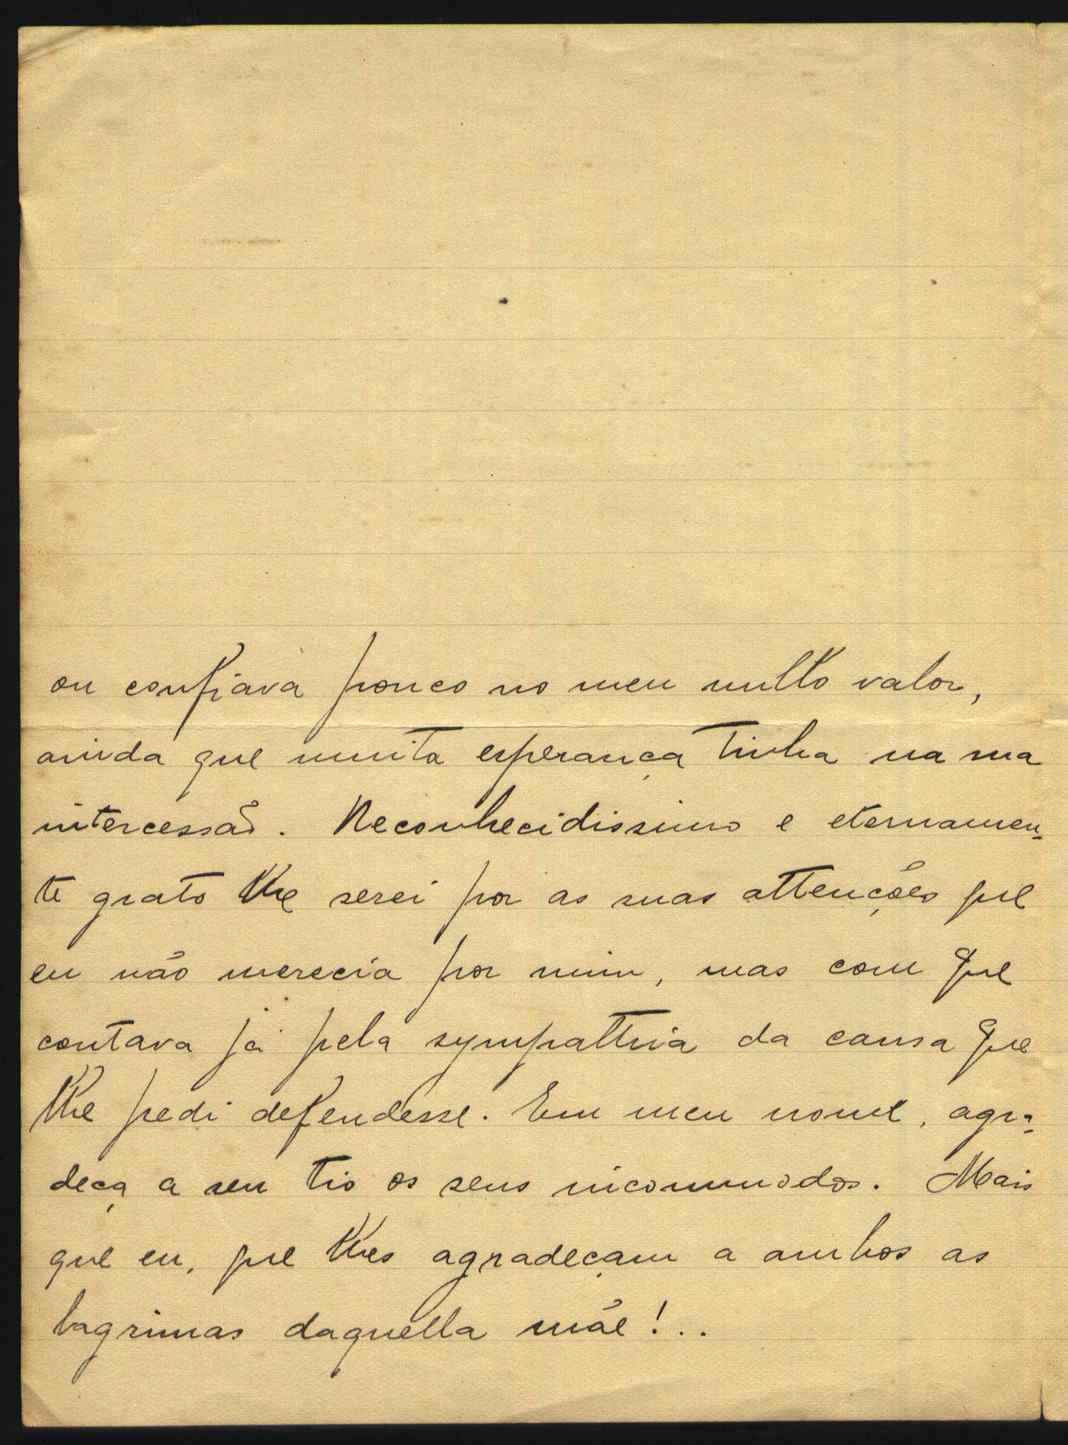 ou confiava pouco no meu nullo valor,
ainda que muita esperança tinha na sua
intercessão. Reconhecidissimo e eternamen-
te grato lhe serei por as suas attenções que
eu não merecia por mim, mas com que
contava já pela sympathia da causa que
lhe pedi defendesse. Em meu nome, agra-
deça a seu tio os seus incommodos. Mais
que eu, que lhes agradeçam a ambos as
lagrimas daquella mãe!..